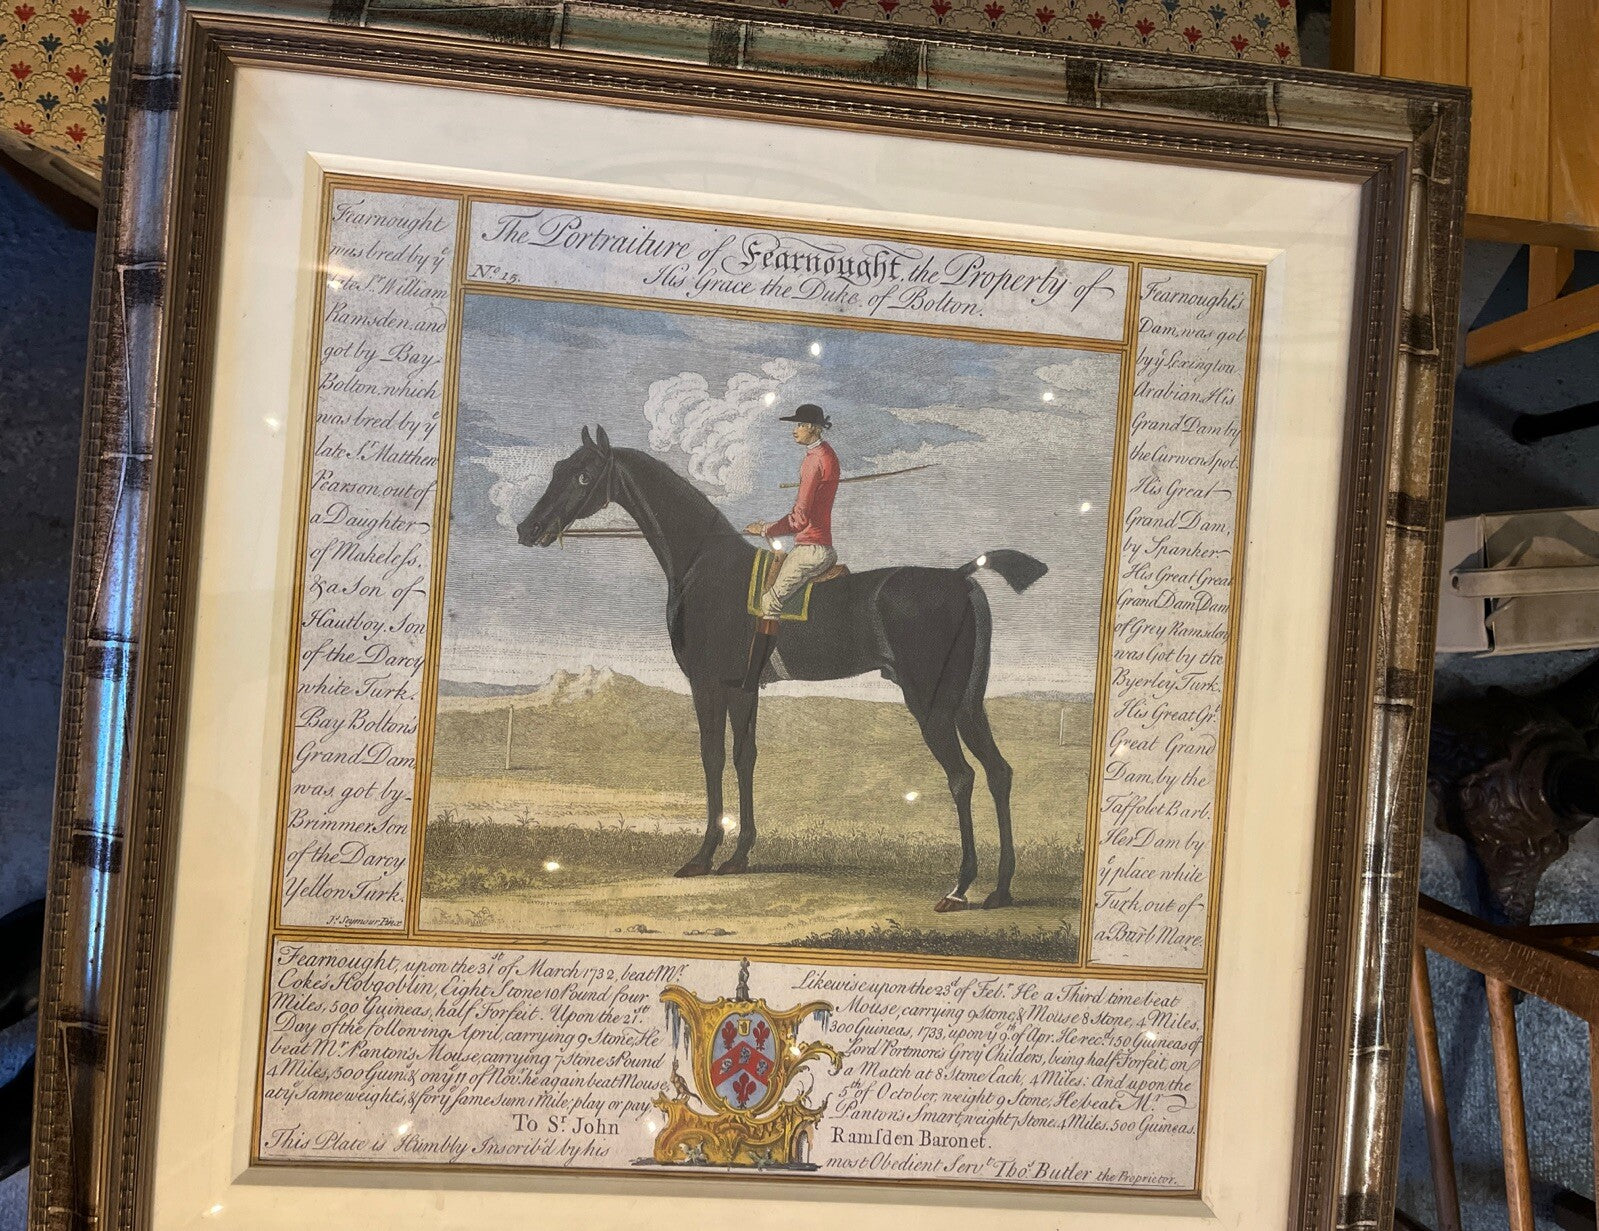 The Portraiture of Fearnought, the Property of
His Grace the Duke of Bolton.
No. 15.
Fearnought
was bred by ye
late Sr. William
Ramsden, and
got by Bay
Bolton, which
was bred by ye
late Sr. Matthew
Pearson, out of
a Daughter
of Makeless,
& a Son of
Hautboy, Son
of the Darcy
white Turk.
Bay Bolton's
Grand Dam
was got by
Brimmer, Son
of the Darcy
Yellow Turk.
Js. Seymour Pinx
Fearnought's
Dam, was got
by ye Lexington
Arabian, His
Grand Dam by
the Curwen Spot.
His Great
Grand Dam,
by Spanker
His Great Great
Grand Dam, Dam
of Grey Ramsden
was Got by the
Byerley Turk.
His Great Grt.
Great Grand
Dam, by the
Taffolet Barb.
Her Dam by
ye place white
Turk, out of
a Barb Mare.
Fearnought, upon the 31st of March 1732, beat Mr.
Coke's Hobgoblin, Eight Stone 10 Pound four
Miles, 500 Guineas, half Forfeit. Upon the 21st.
Day of the following April, carrying 9 Stone, He
beat Mr. Panton's Mouse, carrying 7 Stone 5 Pound
4 Miles, 500 Guins. & on ye 11 of Novr. he again beat Mouse,
at ye same weights, & for ye same sum 1 Mile, play or pay,
Likewise upon the 23d. of Feb. He a Third time beat
Mouse, carrying 9 Stone, & Mouse 8 Stone, 4 Miles,
300 Guineas, 1733, upon ye 9th. of Apr. He rec'd. 150 Guineas of
Lord Portmore's Grey Childers, being half Forfeit, on
a Match at 8 Stone Each, 4 Miles: And upon the
5th of October, weight 9 Stone, He beat Mr.
Panton's Smart, weight 7 Stone, 4 Miles, 500 Guineas.
To Sr. John Ramsden Baronet.
This Plate is Humbly Inscrib'd by his most Obedient Servt. Thos. Butler the Proprietor.